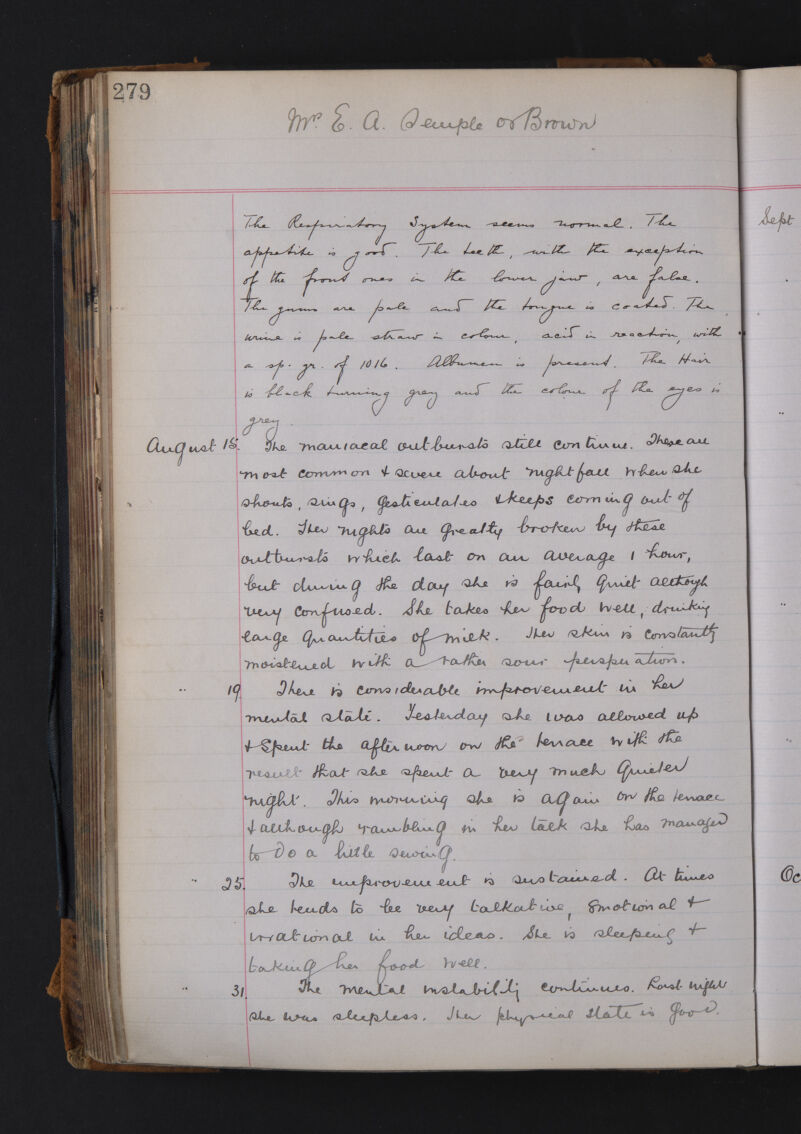 279
Mrs E. A. Semple or Brown
The Respiratory System seems normal. The
appetite is good. The teeth, with the exception
of the front ones in the lower jaw, are false.
The gums are pale and the tongue is coated. The
urine is pale straw in colour, acid in reaction, with
a sp. gr. of 1016. Albumen is present. The Hair
is black turning grey and the colour of the eyes is
grey.
August 15. The maniacal outbursts still continue. These are
most common & severe about nightfall when she
shouts, sings, gesticulates & keeps coming out of
bed. Her nights are greatly broken by these
outbursts which last on an average 1 hour,
but during the day she is fairly quiet although
very confused. She takes her food well, drinking
large quantities of milk. Her skin is constantly
moistened with a rather sour perspiration.
" 19. There is considerable improvement in her
mental state. Yesterday she was allowed up
& spent the afternoon on the terrace with the
result that she spent a very much quieter
night. This morning she is again on the terrace
& although rambling in her talk she has managed
to do a little sewing.
" 25. The improvement is sustained. At times
she tends to be very talkative, emotional &
irrational in her ideas. She is sleeping &
taking her food well.
" 31. The mental instability continues. Last night
she was sleepless. Her physical state is good.
Sept
"
"
Oc